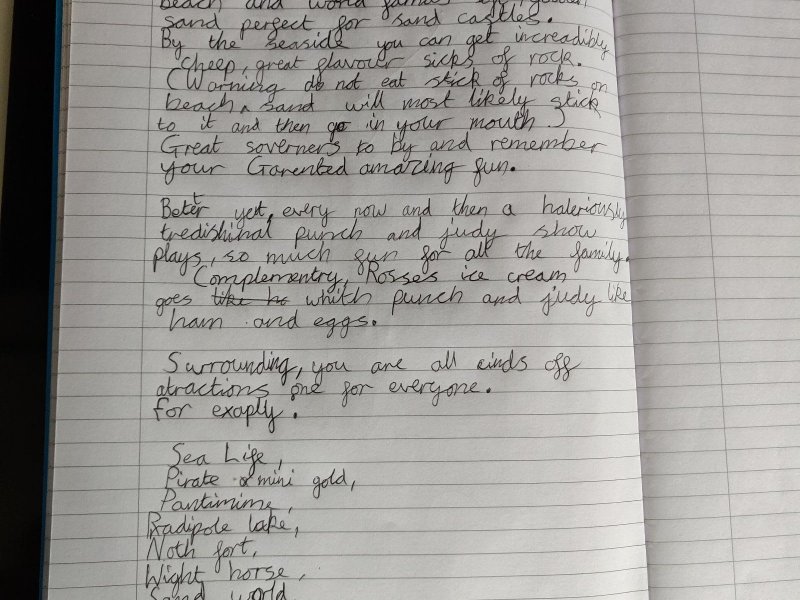 beach and world famies golden
sand perfect for sand castles.
By the seaside you can get increadibly
cheep, great flavour sicks of rock.
(Warning do not eat stick of rocks on
beach, sand will most likely stick
to it and then go in your mouth.)
Great soverners to by and remember
your Garented amazing fun.
Better yet, every now and then a haleriously
tredishinal punch and judy show
plays, so much fun for all the family.
Complementry, Rosses ice cream
goes like ha whith punch and judy like
ham and eggs.
Surrounding, you are all kinds off
atractions one for everyone.
for exaply.
Sea Life,
Pirate mini gold,
Pantimime,
Radipole lake,
Noth fort,
Wight horse,
Sand world